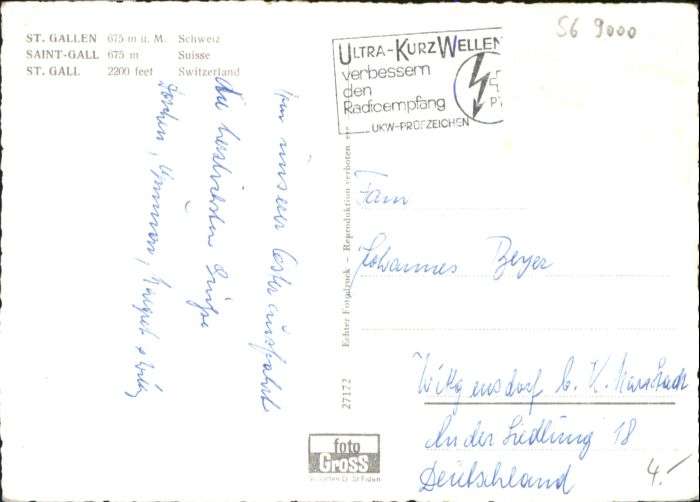 ST. GALLEN 675 m ü. M. Schweiz
SAINT-GALL 675 m Suisse
ST. GALL 2200 feet Switzerland
SG 9000
ULTRA-KURZWELLEN
verbessern
den
Radioempfang
UKW-PRÜFZEICHEN
unserer
die herzlichsten Grüße
Echter Fotodruck - Reproduktion verboten
27172
Fam
Johannes Beyer
Wittgensdorf b. K. Marx Stadt
An der Siedlung 18
Deutschland
4.-
foto
Gross
St. Gallen O. St Fiden